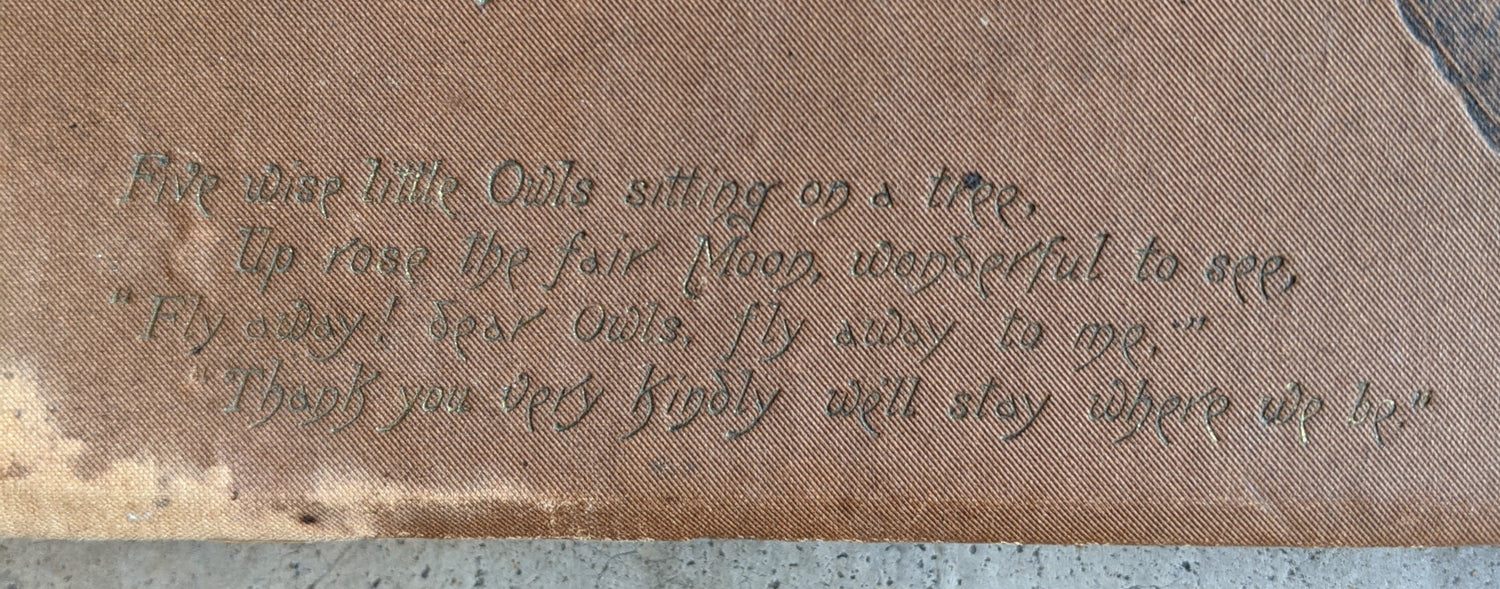 Five wise little Owls sitting on a tree,
Up rose the fair Moon, wonderful to see,
"Fly away! dear Owls, fly away to me,"
"Thank you very kindly we'll stay where we be."